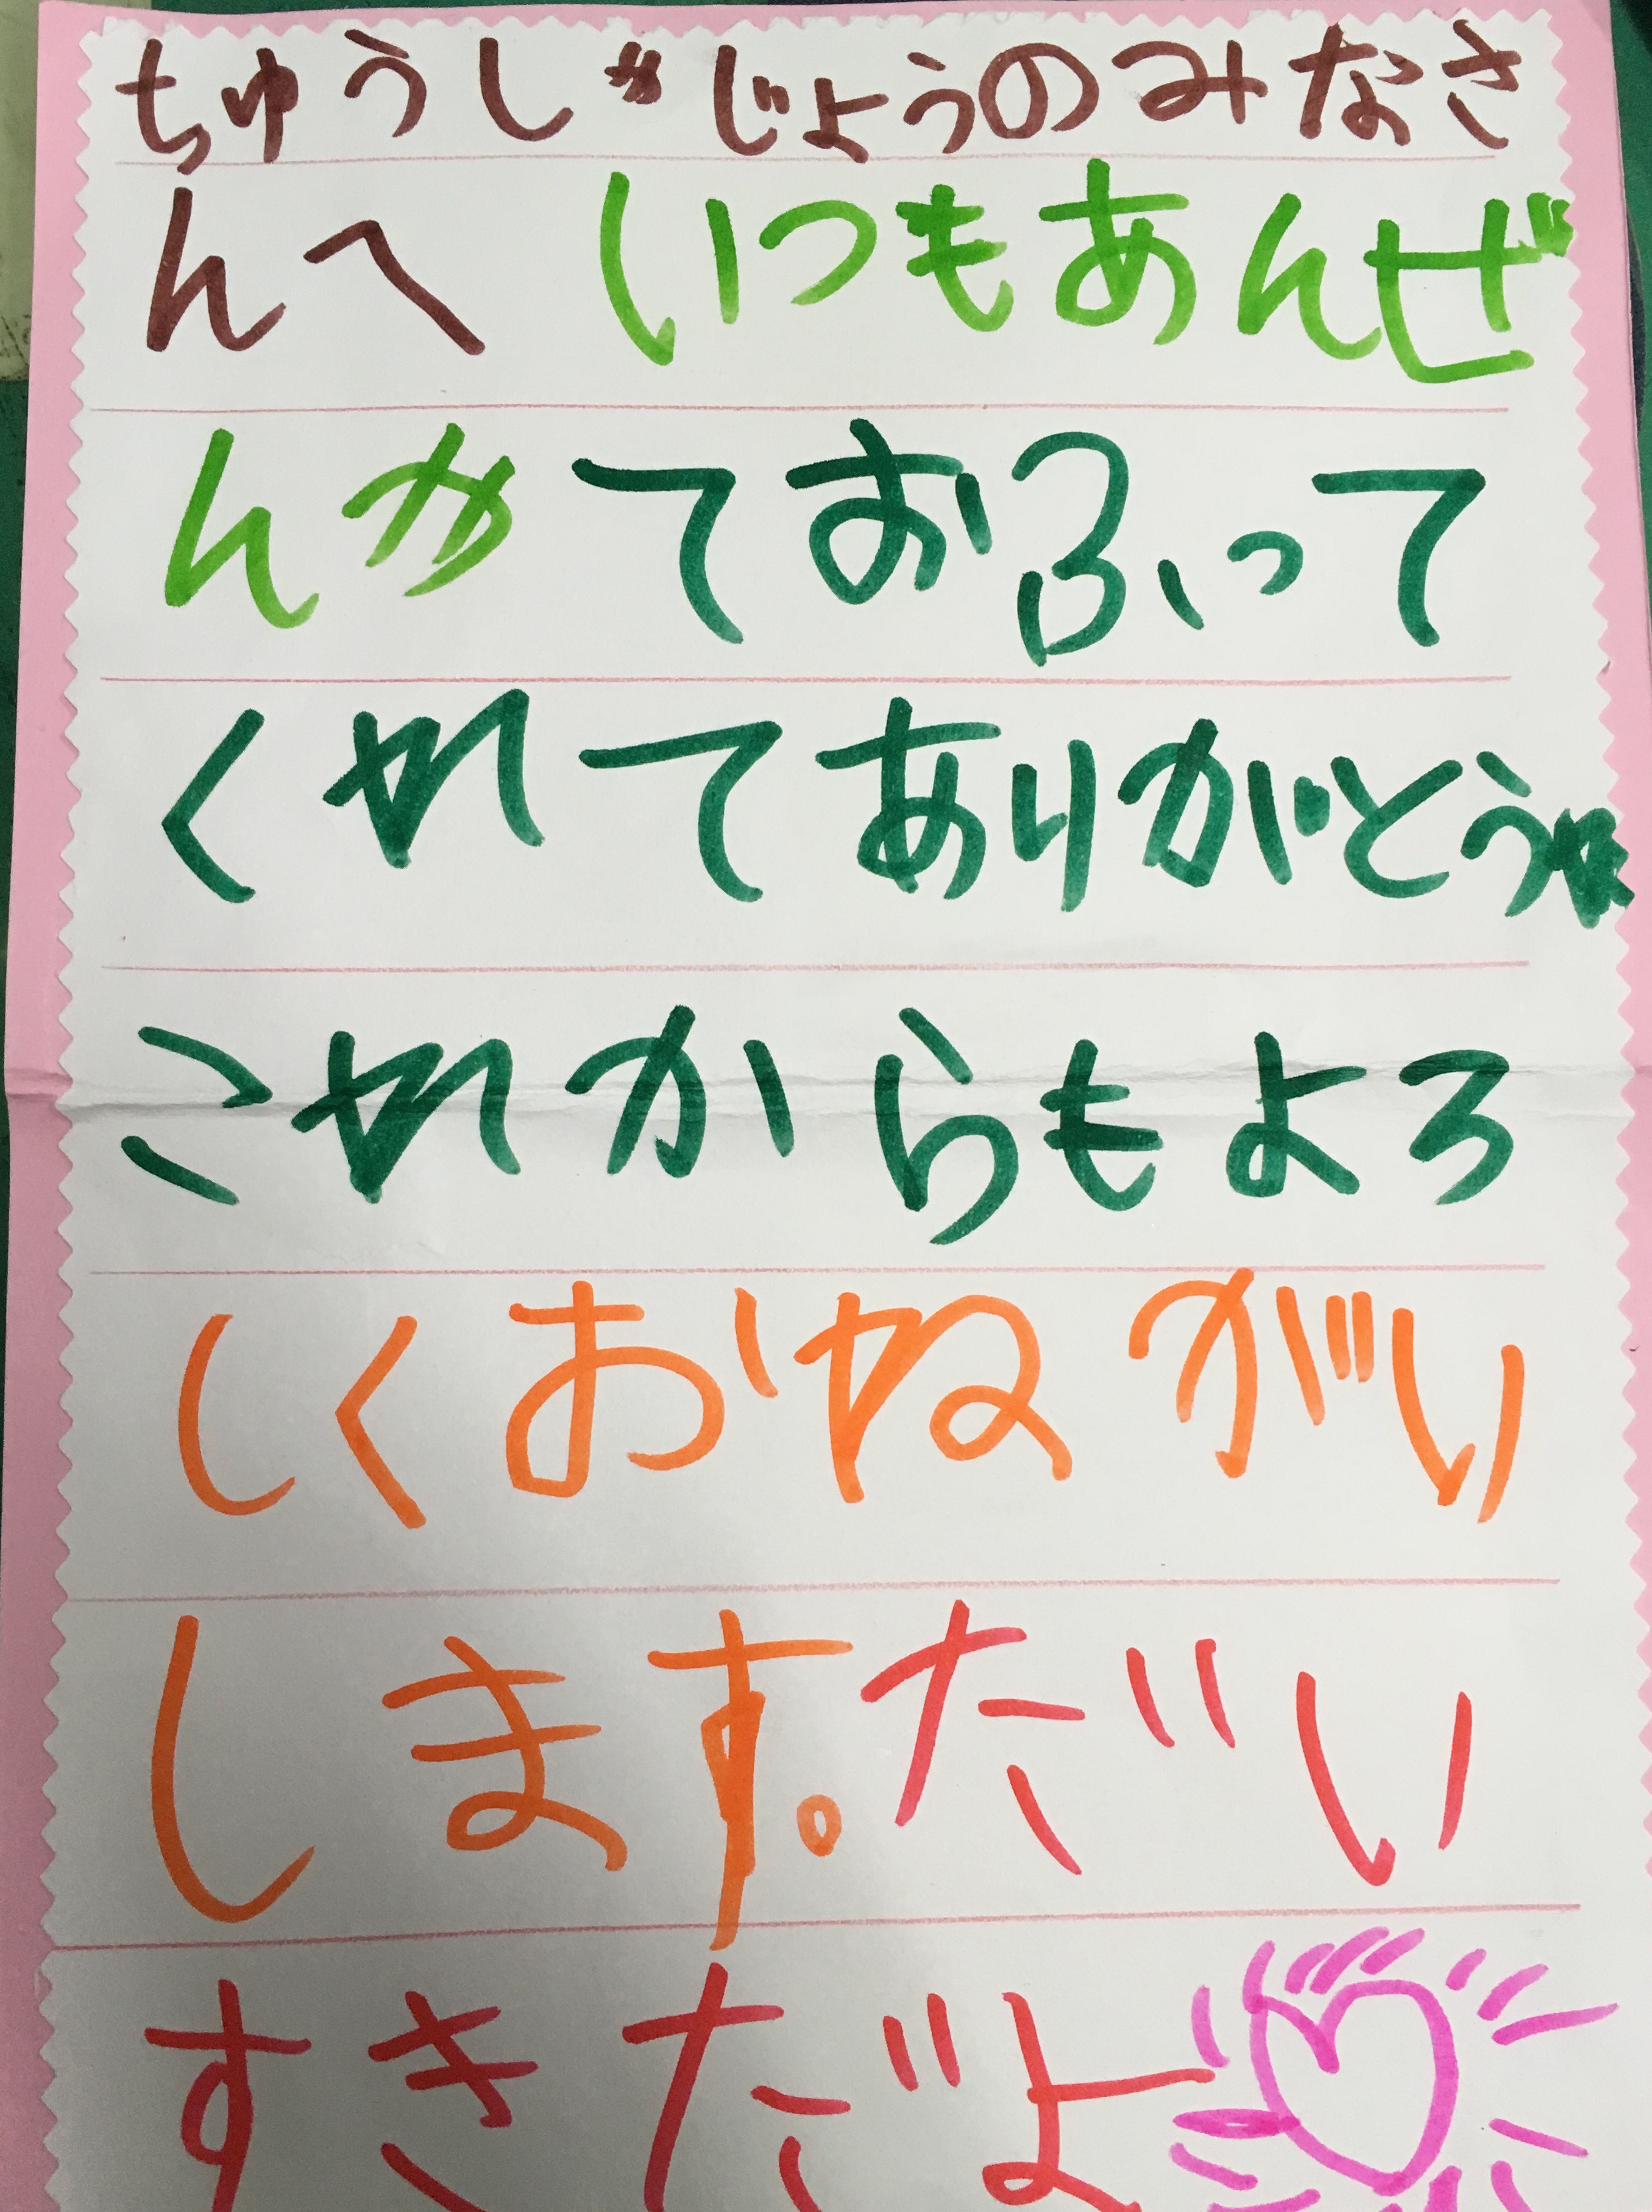 ちゅうしじょうのみなさ
んへ いつもあんぜ
ん ておふって
くれてありがとう
これからもよろ
しくおねがい
します。だい
すきだよ